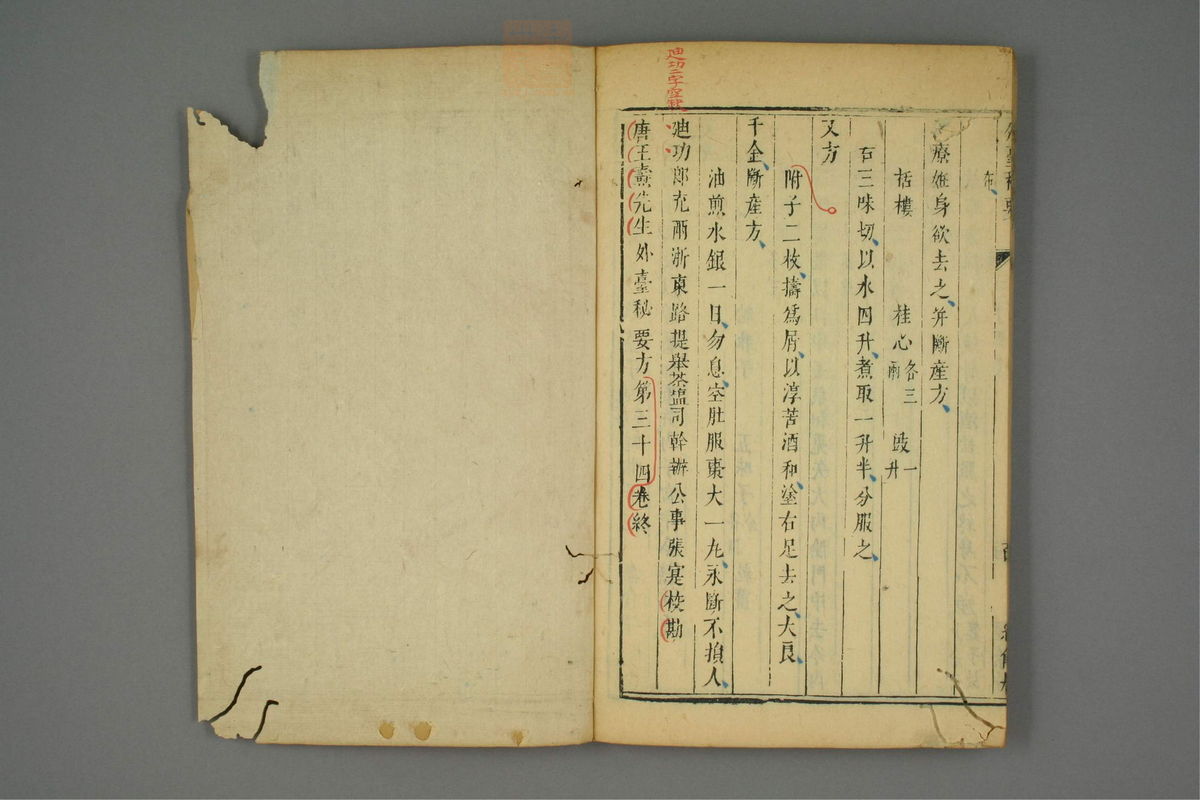 迪功二字
療妊身欲去之并斷産方
栝樓 桂心各三兩 豉一升
右三味切以水四升煮取一升半分服之
又方
附子二枚擣爲屑以淳苦酒和塗右足去之大良
千金斷産方
油煎水銀一日勿息空肚服棗大一丸永斷不損人
迪功郎充兩浙東路提舉茶鹽司幹辦公事張寔校勘
唐王燾先生外臺秘要方第三十四卷終